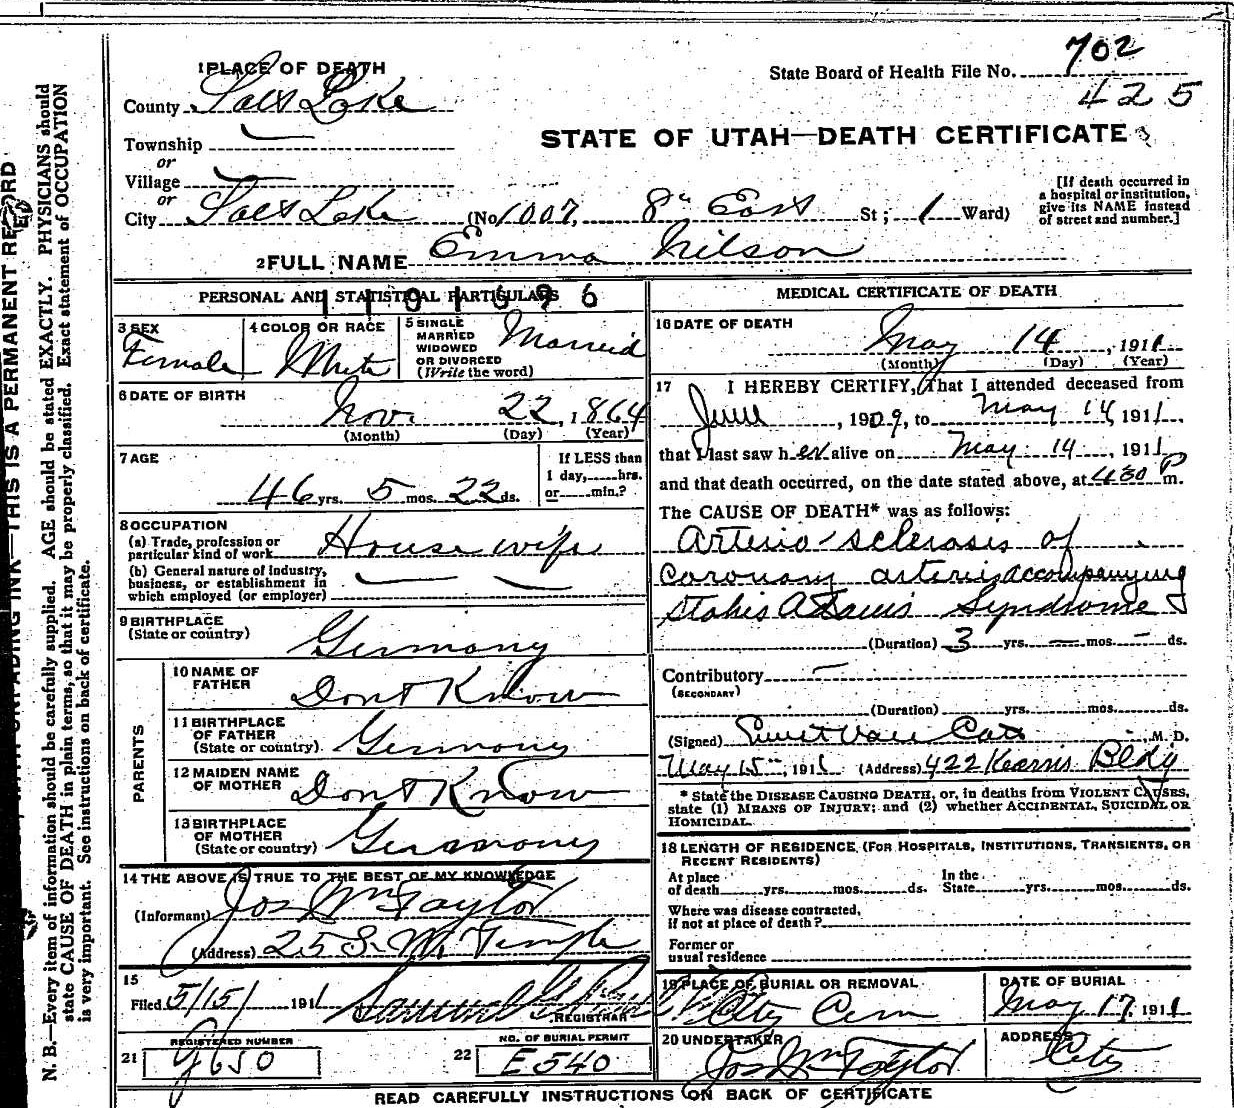 702
State Board of Health File No.
425
1 PLACE OF DEATH
County Salt Lake
STATE OF UTAH—DEATH CERTIFICATE
Township
or
Village
or
City Salt Lake (No. 1007, 8th East St; 1 Ward)
[If death occurred in
a hospital or institution,
give its NAME instead
of street and number.]
2 FULL NAME Emma Nilson
PERSONAL AND STATISTICAL PARTICULARS
1101696
3 SEX
Female
4 COLOR OR RACE
White
5 SINGLE
MARRIED
WIDOWED
OR DIVORCED
(Write the word)
Married
6 DATE OF BIRTH
Nov. 22, 1864
(Month) (Day) (Year)
7 AGE
46 yrs. 5 mos. 22 ds.
If LESS than
1 day,......hrs.
or......min.?
8 OCCUPATION
(a) Trade, profession or
particular kind of work House wife
(b) General nature of industry,
business, or establishment in
which employed (or employer)
9 BIRTHPLACE
(State or country) Germany
PARENTS
10 NAME OF
FATHER Dont Know
11 BIRTHPLACE
OF FATHER
(State or country) Germany
12 MAIDEN NAME
OF MOTHER Dont Know
13 BIRTHPLACE
OF MOTHER
(State or country) Germany
14 THE ABOVE IS TRUE TO THE BEST OF MY KNOWLEDGE
(Informant) Jos Wm Taylor
(Address) 25 S. W. Temple
15
Filed 5/15/ 1911 Samuel G.
REGISTRAR
REGISTERED NUMBER
21 G650
NO. OF BURIAL PERMIT
22 E540
MEDICAL CERTIFICATE OF DEATH
16 DATE OF DEATH
May 14, 1911
(Month) (Day) (Year)
17 I HEREBY CERTIFY, That I attended deceased from
June, 1909, to May 14, 1911,
that I last saw her alive on May 14, 1911
and that death occurred, on the date stated above, at 4:30 P m.
The CAUSE OF DEATH* was as follows:
Arterio-sclerosis of
coronary arteries accompanying
Stokes Adams Syndrome
(Duration) 3 yrs. — mos. — ds.
Contributory —
(SECONDARY)
(Duration)......yrs.......mos.......ds.
(Signed) Van Cott, M. D.
May 15th, 1911 (Address) 422 Kearns Bldg
* State the DISEASE CAUSING DEATH, or, in deaths from VIOLENT CAUSES,
state (1) MEANS OF INJURY; and (2) whether ACCIDENTAL, SUICIDAL OR
HOMICIDAL.
18 LENGTH OF RESIDENCE (FOR HOSPITALS, INSTITUTIONS, TRANSIENTS, OR
RECENT RESIDENTS)
At place
of death......yrs.......mos.......ds.
In the
State......yrs.......mos.......ds.
Where was disease contracted,
if not at place of death?
Former or
usual residence
19 PLACE OF BURIAL OR REMOVAL
City Cem
DATE OF BURIAL
May 17, 1911
20 UNDERTAKER
Jos Wm Taylor
ADDRESS
City
READ CAREFULLY INSTRUCTIONS ON BACK OF CERTIFICATE
UNFADING INK—THIS IS A PERMANENT RECORD
N. B.—Every item of information should be carefully supplied. AGE should be stated EXACTLY. PHYSICIANS should
state CAUSE OF DEATH in plain terms, so that it may be properly classified. Exact statement of OCCUPATION
is very important. See instructions on back of certificate.